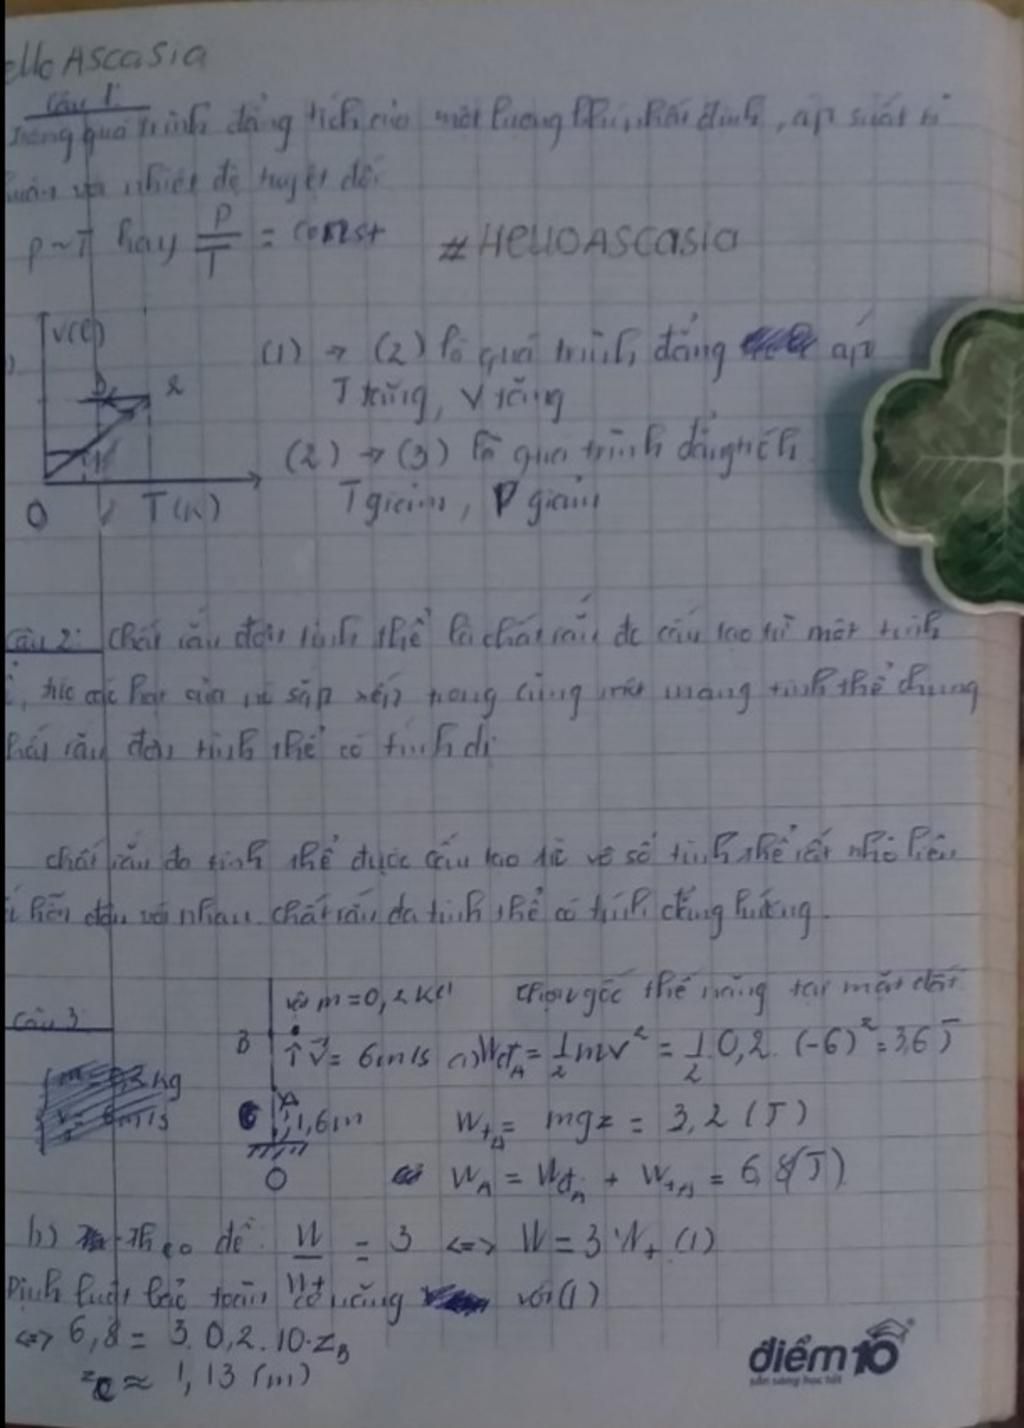 ello Ascasia
Câu 1:
trong quá trình đẳng tích của một lượng khí nhất định, áp suất tỉ
thuận với nhiệt độ tuyệt đối
P~T hay P/T = const #HelloAscasia
V(l)
(1) → (2) là quá trình đẳng áp
2
T tăng, V tăng
(2) → (3) là quá trình đẳng tích
T giảm, P giảm
O T(K)
Câu 2: Chất rắn đơn tinh thể là chất rắn đc cấu tạo từ một tinh
, tức các hạt của nó sắp xếp trong cùng một mạng tinh thể chung
chất rắn đơn tinh thể có tính dị
chất rắn đa tinh thể được cấu tạo từ vô số tinh thể rất nhỏ liên
hỗn độn với nhau. chất rắn đa tinh thể có tính đẳng hướng.
m = 0,2 kg chọn gốc thế năng tại mặt đất
Câu 3:
B ↑ v⃗ = 6m/s a) WđA = 1/2 mv² = 1/2 . 0,2 . (-6)² = 3,6 J
A
1,6m WtA = mgz = 3,2 (J)
O WA = WđA + WtA = 6,8 (J)
b) Theo đề: W/Wt = 3 <=> W = 3Wt (1)
Định luật bảo toàn cơ năng với (1)
<=> 6,8 = 3.0,2.10.zB
≈ 1,13 (m)
điểm10
sẵn sàng học tốt